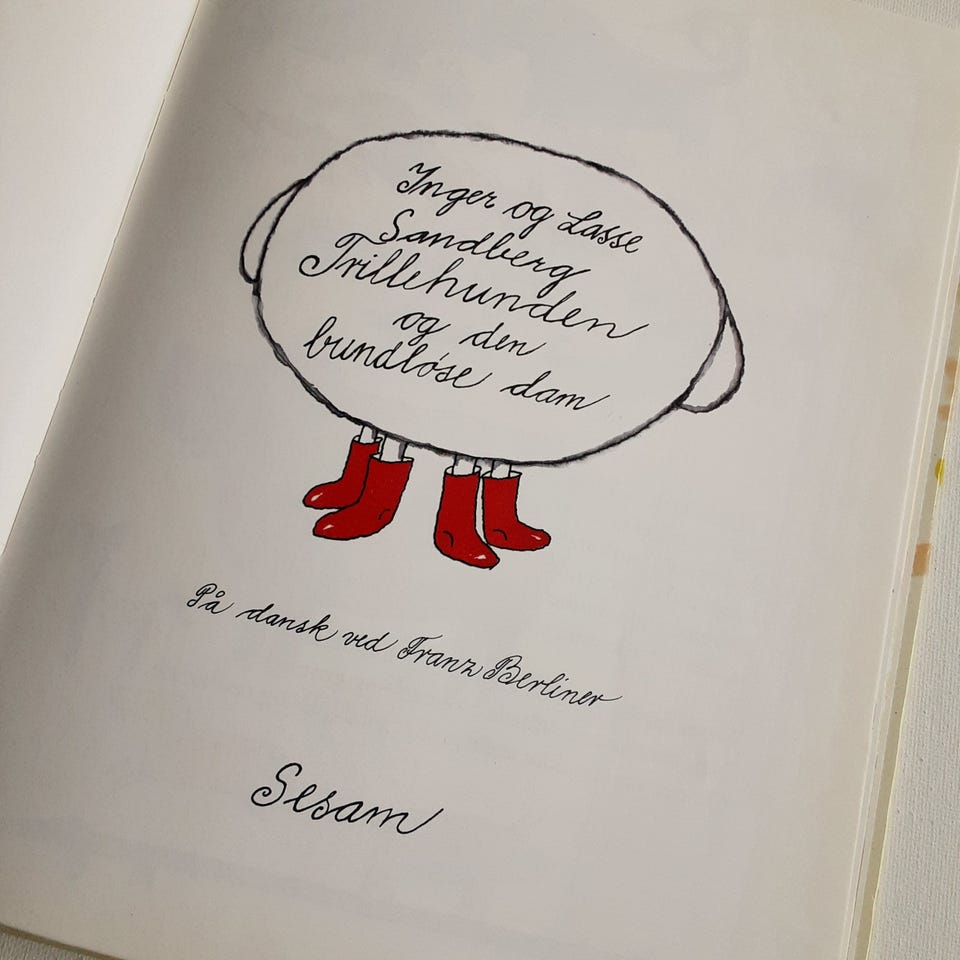 Inger og Lasse
Sandberg
Trillehunden
og den
bundløse dam
På dansk ved Franz Berliner
Sesam